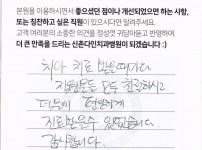 본원을 이용하시면서 좋으셨던 점이나 개선되었으면 하는 사항,
또는 칭찬하고 싶은 직원이 있으시다면 알려주세요.
고객 여러분의 소중한 의견을 정성껏 귀담아듣고 반영하여
더 큰 만족을 드리는 신촌다인치과병원이 되겠습니다 :)
치아 치료 받을때마다
직원분들 모두 친절하시고
더욱이 편안하게
치료받을수 있었습니다
감사합니다.